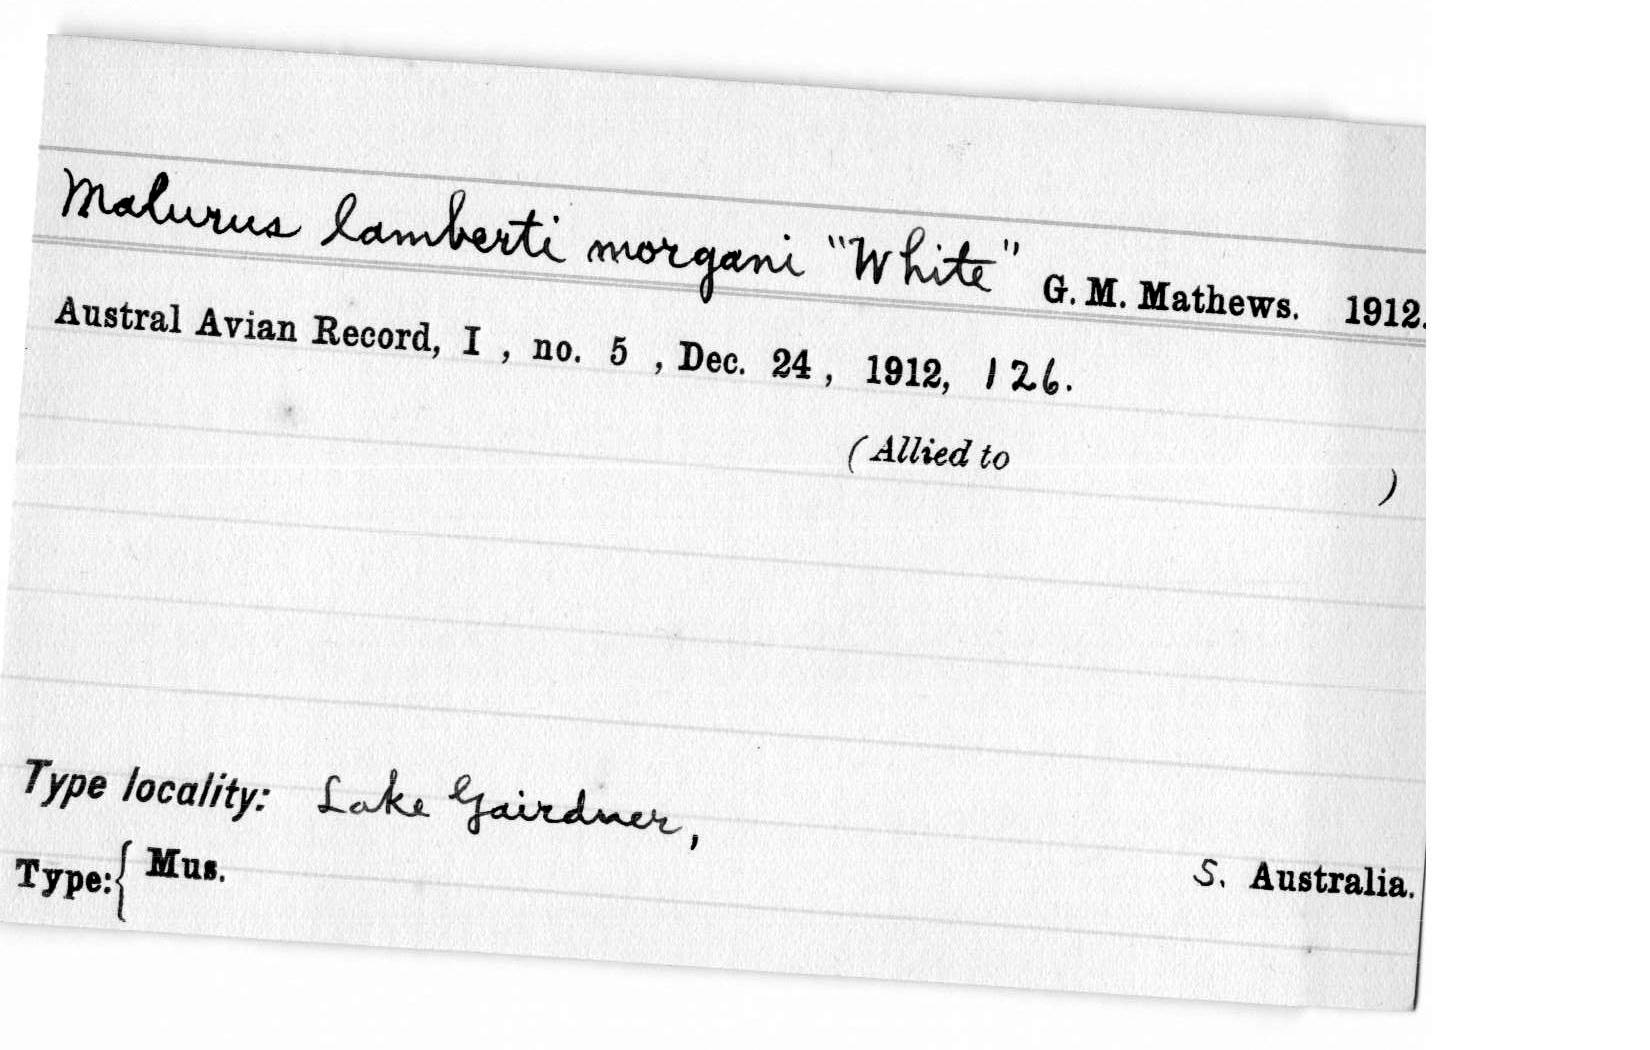 Malurus lamberti morgani "White" G. M. Mathews. 1912.
Austral Avian Record, I , no. 5 , Dec. 24 , 1912, 126.
(Allied to )
Type locality: Lake Gairdner,
S. Australia.
Type: { Mus.